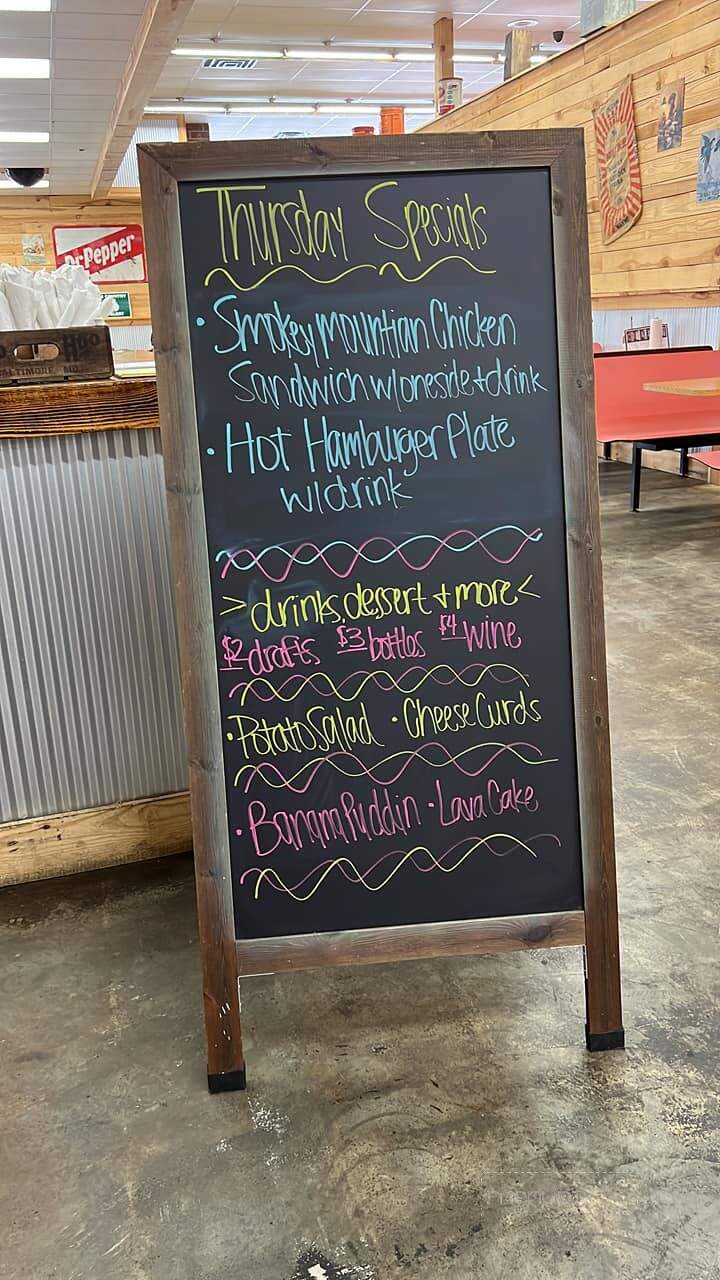 Thursday Specials
• Smokey Mountian Chicken
Sandwich w/ one side + drink
• Hot Hamburger Plate
w/ drink
> drinks, dessert + more <
$2 drafts $3 bottles $4 wine
• Potato Salad • Cheese Curds
• Banana Puddin • Lava Cake
Dr Pepper
HOO
BALTIMORE, MD.